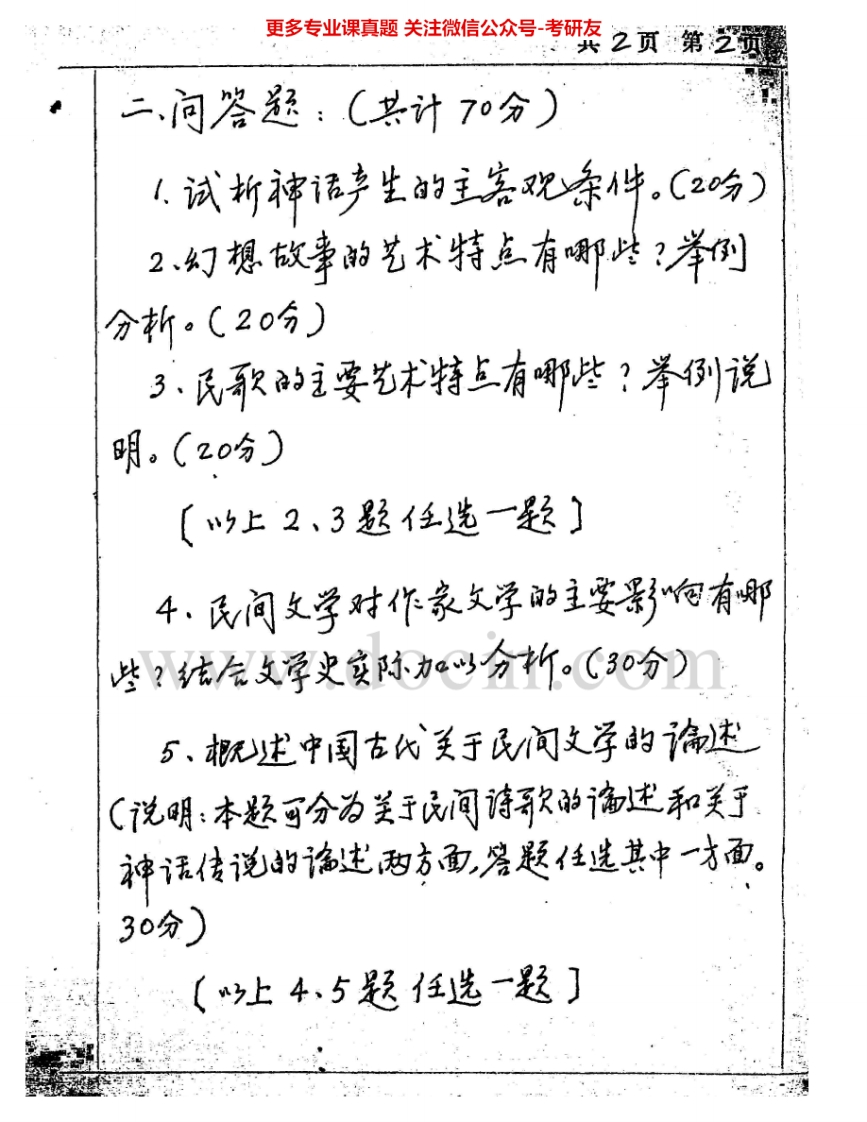 更多专业课真题 关注微信公众号-考研友
共 2 页 第 2 页
二、问答题：（共计 70分）
1. 试析神话产生的主客观条件。（20分）
2、幻想故事的艺术特点有哪些？举例
分析。（20分）
3、民歌的主要艺术特点有哪些？举例说
明。（20分）
［以上 2、3 题任选一题］
4、民间文学对作家文学的主要影响有哪
些？结合文学史实际加以分析。（30分）
www.docin.com
5、概述中国古代关于民间文学的论述
（说明：本题可分为关于民间诗歌的论述和关于
神话传说的论述两方面，答题任选其中一方面。
30分）
［以上 4、5 题任选一题］